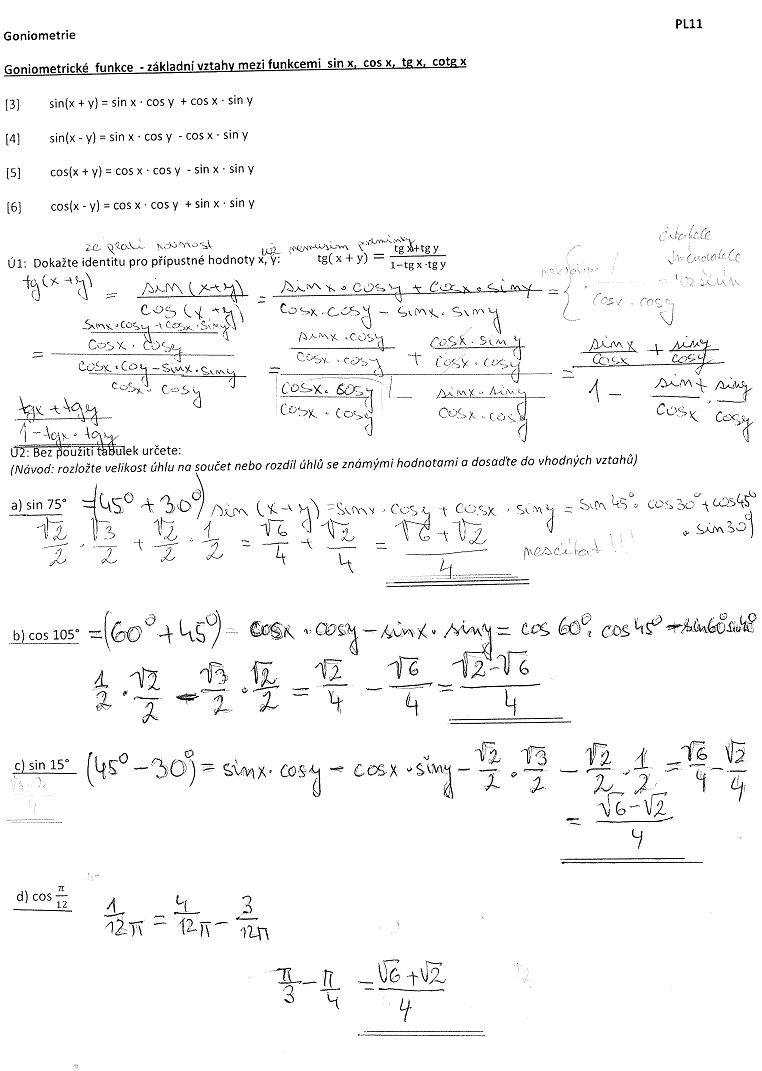 PL11
Goniometrie
Goniometrické funkce - základní vztahy mezi funkcemi sin x, cos x, tg x, cotg x
[3] sin(x + y) = sin x · cos y + cos x · sin y
[4] sin(x - y) = sin x · cos y - cos x · sin y
[5] cos(x + y) = cos x · cos y - sin x · sin y
[6] cos(x - y) = cos x · cos y + sin x · sin y
že platí rovnost už nemusím podmínky
Ú1: Dokažte identitu pro přípustné hodnoty x, y: tg( x + y) = (tg x+tg y)/(1−tg x ·tg y)
čitatele
jmenovatele
tg(x+y) = sin(x+y)/cos(x+y) = (sinx·cosy + cosx·siny)/(cosx·cosy − sinx·siny) = { 1/(cosx·cosy)
= ((sinx·cosy+cosx·siny)/(cosx·cosy))/((cosx·coy−sinx·siny)/(cosx·cosy)) = ((sinx·cosy)/(cosx·cosy) + (cosx·siny)/(cosx·cosy))/((cosx·cosy)/(cosx·cosy) − (sinx·siny)/(cosx·cosy)) = (sinx/cosx + siny/cosy)/(1 − sinx/cosx · siny/cosy)
(tgx+tgy)/(1−tgx·tgy)
Ú2: Bez použití tabulek určete:
(Návod: rozložte velikost úhlu na součet nebo rozdíl úhlů se známými hodnotami a dosaďte do vhodných vztahů)
a) sin 75° =(45°+30°) sin (x+y) =sinx·cosy + cosx·siny = sin45°·cos30°+cos45°
·sin30°
√2/2 · √3/2 + √2/2 · 1/2 = √6/4 + √2/4 = (√6+√2)/4 nesčítat!!!
b) cos 105° =(60°+45°)= cosx·cosy−sinx·siny= cos 60°·cos45° −sin60°sin45°
1/2 · √2/2 − √3/2 · √2/2 = √2/4 − √6/4 = (√2−√6)/4
c) sin 15° (45°−30°)= sinx·cosy − cosx·siny − √2/2 · √3/2 − √2/2 · 1/2 = √6/4 − √2/4
= (√6−√2)/4
d) cos π/12
1/12π = 4/12π − 3/12π
π/3 − π/4 = (√6+√2)/4